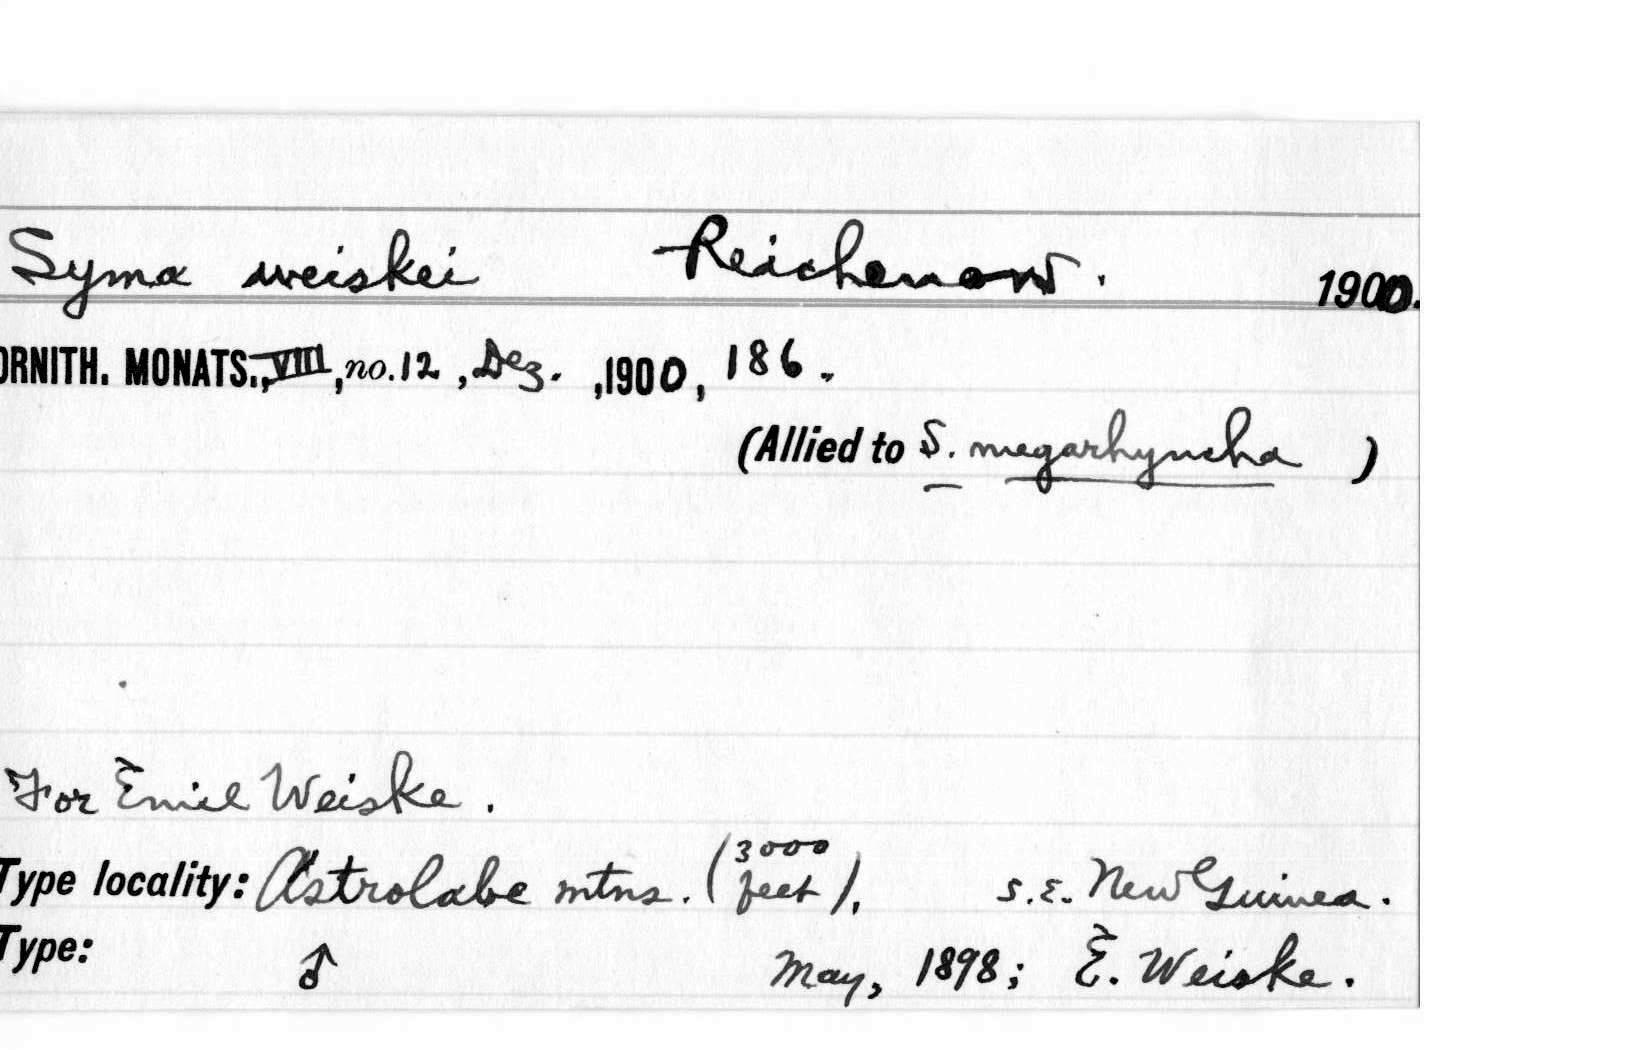 Syma weiskei Reichenow. 1900.
ORNITH. MONATS., VIII, no. 12, Dez. ,1900, 186.
(Allied to S. megarhyncha )
For Emil Weiske.
Type locality: Astrolabe mtns. (3000 feet), S.E. New Guinea.
Type: ♂ May, 1898; E. Weiske.